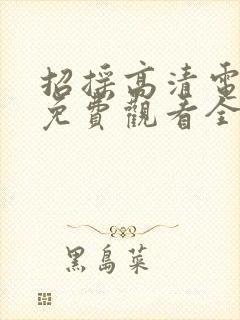 招採高清電
免費觀看全
黑島菜